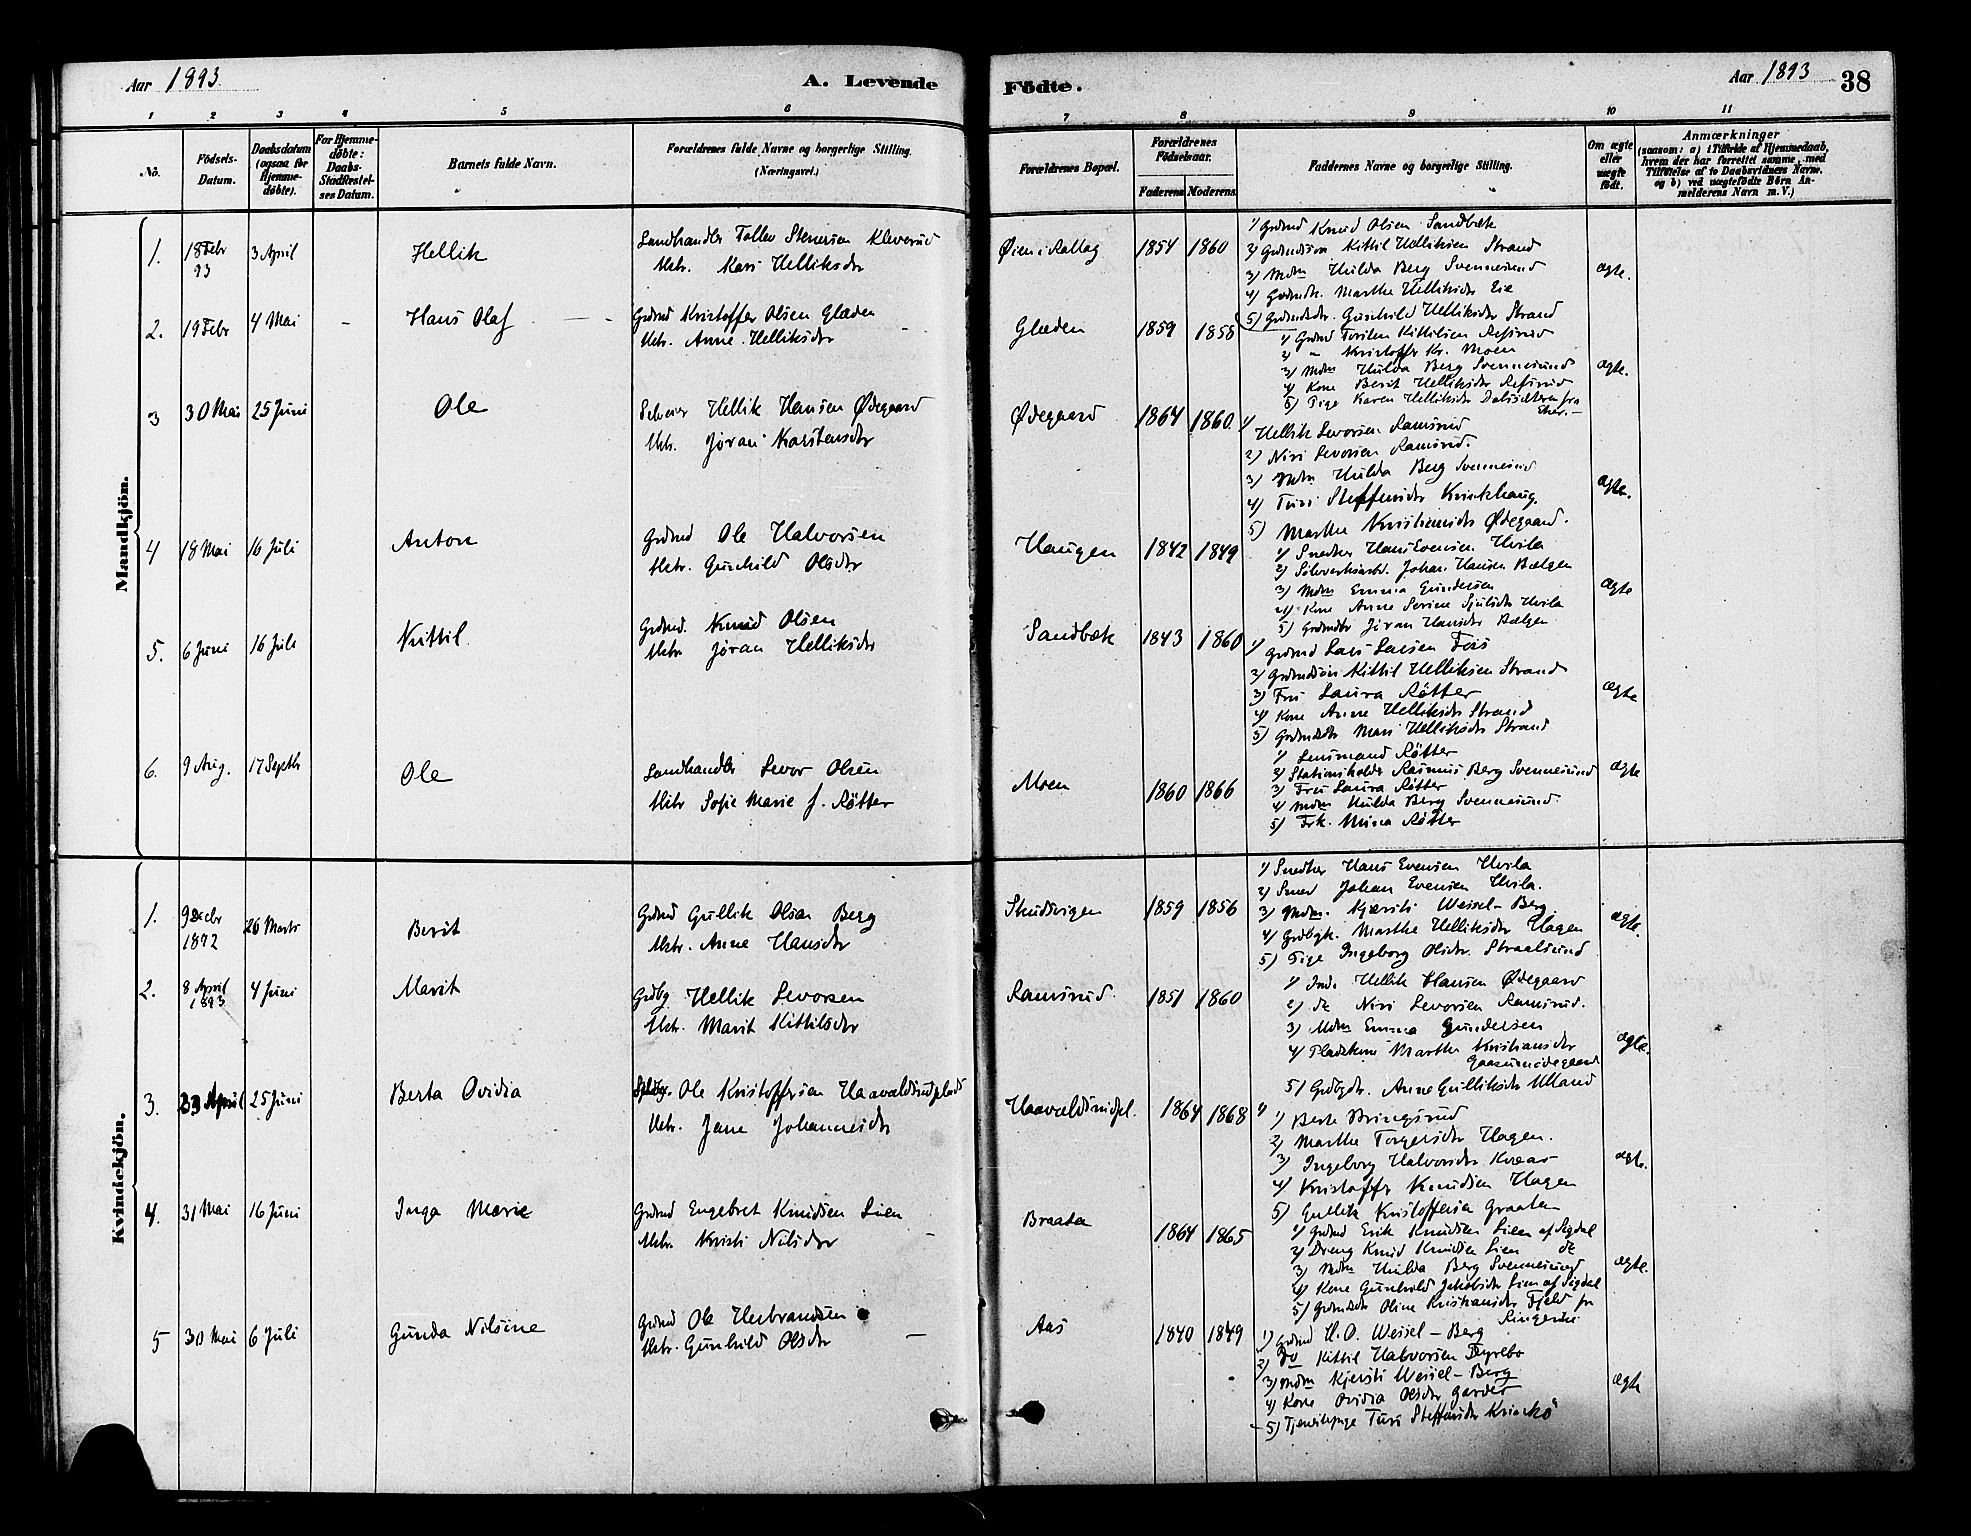 Aar 1893
A. Levende
Födte.
Aar 1893
38
1 2 3 4 5 6
7 8 9 10 11
No.
Födsels-
Datum.
Daabsdatum
(ogsaa for
Hjemme-
döbte).
For Hjemme-
döbte:
Daabs-
Stadfæstel-
ses Datum.
Barnets fulde Navn.
Forældrenes fulde Navne og borgerlige Stilling.
(Næringsvei.)
Forældrenes Bopæl.
Forældrenes
Födselsaar.
Faderens Moderens.
Faddernes Navne og borgerlige Stilling.
Om ægte
eller
uægte
födt.
Anmærkninger
(saasom: a) i Tilfælde af Hjemmedaab,
hvem der har forrettet samme, med
Tilföielse af to Daabsvidners Navne,
og b) ved uægtefödte Börn An-
melderens Navn m. V.)
Mandkjön.
1. 18 Febr 93 3 April Hellik
Landhandler Tollev Stenersen Kleverud
Hstr. Kari Helliksdr
Øien i Rollag 1854 1860
1) Grdmd Knud Olsen Sandbæk
2) Grdmdsøn Kittil Helliksen Strand
3) Mdm Hulda Berg Svennesund
4) Grdmdk. Marthe Helliksdr Eie
5) Grdmdsdr. Gunhild Helliksdr Strand
ægte.
2. 19 Febr 4 Mai - Hans Olaf
Grdmd Kristoffer Olsen Glæden
Hstr. Anne Helliksdr
Glæden 1859 1858
1) Grdmd Torsten Kittilsen Refsrud
2) " Kristoffer Kr. Moen
3) Mdm Hulda Berg Svennesund
4) Kone Berit Helliksdr Refsrud
5) Pige Karen Helliksdr
ægte.
3 30 Mai 25 Juni Ole
Selveier Hellik Hansen Ødegaard
Hstr. Jøran Karstensdr
Ødegaard 1864 1860
1) Hellik Levorsen Ramsrud
2) Niri Levorsen Ramsrud.
3) Mdm Hulda Berg Svennesund
4) Turi Steffensdr
5) Marthe Kristiansdr Ødegaard.
ægte.
4 18 Mai 16 Juli Anton
Grdmd Ole Halvorsen
Hstr. Gunhild Olsdr
Haugen 1842 1849
1) Snedker Hans Evensen Hvila
2) Sølverksarbd. Johan Hansen Bælgen
3) Mdm Emma Gundersen
4) Kone Anne Serine Hvila
5) Grdmdsdr Jøran Hansdr Bælgen
ægte
5. 6 Juni 16 Juli Kittil
Grdmd. Knud Olsen
Hstr Jøran Helliksdr
Sandbæk 1843 1860
1) Grdmd Lars Larsen Foss
2) Grdmdsøn Kittil Helliksen Strand
3) Fru Laura Røtter
4) Kone Anne Helliksdr Strand
5) Grdmdsdtr Mari Helliksdr Strand
ægte
6. 9 Aug. 17 Septbr Ole
Landhandler Levor Olsen
Hstr Sofie Marie f. Røtter
Moen 1860 1866
1) Lensmand Røtter
2) Stationsholder Rasmus Berg Svennesund
3) Fru Laura Røtter
4) Mdm Hulda Berg Svennesund.
5) Frk. Mina Røtter
ægte
Kvindekjön.
1. 9 Decbr 1892 26 Marts Berit
Grdmd Gullik Olsen Berg
Hstr. Anne Hansdr
Skudsvigen 1859 1856
1) Snedker Hans Evensen Hvila
2) Smed Johan Evensen Hvila.
3) Mdm. Kjersti Wessel-Berg
4) Grdbgk. Marthe Helliksdr Hagen
5) Pige Ingeborg Olsdr. Straalsund
ægte.
2. 8 April 1893 4 Juni Marit
Grdbg Hellik Levorsen
Hstr. Marit Kittilsdr
Ramsrud. 1851 1860
1) Inds. Hellik Hansen Ødegaard
2) do Niri Levorsen Ramsrud.
3) Mdm Emma Gundersen
4) Pladskone Marthe Kristiansdr
5) Grdbgdr. Anne Gulliksdr Ulland
ægte.
3. 23 April 25 Juni Berta Ovidia
Ole Kristoffersen Haavaldsrudplads
Hstr. Jane Johannesdr
Haavaldsrudpl. 1864 1868
1) Berte Bringsrud
2) Marthe Torgersdr Hagen.
3) Ingeborg Halvorsdr
4) Kristoffer Knudsen Hagen
5) Gullik Kristoffersen Graaten
ægte.
4. 31 Mai 16 Juni Inga Marie
Grdmd Engebret Knudsen Lien
Hstr. Kristi Nilsdr
Braata 1864 1865
1) Grdmd Erik Knudsen Lien af Sigdal
2) Dreng Knud Knudsen Lien do
3) Mdm Hulda Berg Svennesund
4) Kone Gunhild Jakobsdr Lien af Sigdal
5) Grdmdsdr Oline Kristiansdr Fjeld fr
Ringerike
ægte.
5 30 Mai 6 Juli Gunda Nilsine
Grdmd Ole Herbrandsen
Hstr. Gunhild Olsdr
Aas 1840 1849
1) Grdmd H. O. Wessel-Berg
2) Do Kittil Halvorsen Fyrebo
3) Mdm Kjersti Wessel-Berg
4) Kone Ovidia Olsdr
5) Tjenestepige Turi Steffensdr
ægte